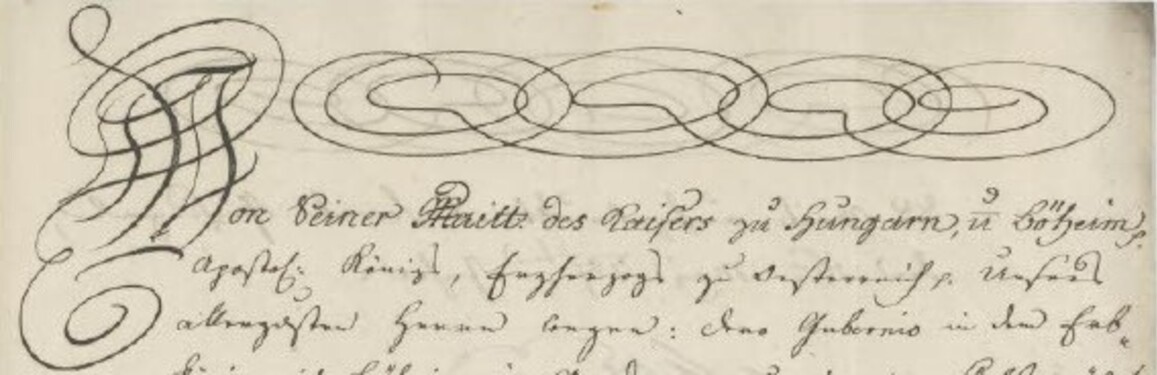 Von Seiner Maitt: des Kaisers zu Hungarn, u Böheim,
Apostol: Königs, Erzherzogs zu Oesterreich p. Unsers
allergdsten Herrn wegen: dero Gubernio in dem Erb-